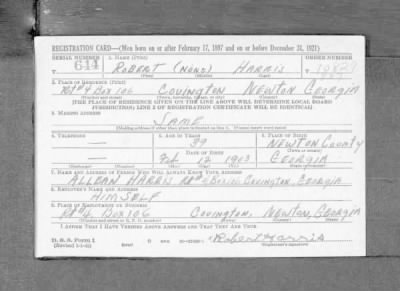 REGISTRATION CARD—(Men born on or after February 17, 1897 and on or before December 31, 1921)
SERIAL NUMBER 1. NAME (Print) ORDER NUMBER
T 644 ROBERT (NONE) HARRIS
(First) (Middle) (Last)
2. PLACE OF RESIDENCE (Print)
Rt #4 Box 106 COVINGTON NEWTON GEORGIA
(Number and street) (Town, township, village, or city) (County) (State)
[THE PLACE OF RESIDENCE GIVEN ON THE LINE ABOVE WILL DETERMINE LOCAL BOARD
JURISDICTION; LINE 2 OF REGISTRATION CERTIFICATE WILL BE IDENTICAL]
3. MAILING ADDRESS
SAME
[Mailing address if other than place indicated on line 2. If same insert word same]
4. TELEPHONE 5. AGE IN YEARS 6. PLACE OF BIRTH
— 39 NEWTON COUNTY
DATE OF BIRTH (Town or county)
— Feb 12 1903 GEORGIA
(Exchange) (Number) (Mo.) (Day) (Yr.) (State or country)
7. NAME AND ADDRESS OF PERSON WHO WILL ALWAYS KNOW YOUR ADDRESS
HARRIS Rt #4 Box 106 COVINGTON, GEORGIA
8. EMPLOYER'S NAME AND ADDRESS
HIMSELF
9. PLACE OF EMPLOYMENT OR BUSINESS
Rt #4 BOX 106 COVINGTON, NEWTON, GEORGIA
(Number and street or R. F. D. number) (Town) (County) (State)
I AFFIRM THAT I HAVE VERIFIED ABOVE ANSWERS AND THAT THEY ARE TRUE.
D. S. S. Form 1 Robert Harris
(Registrant's signature)